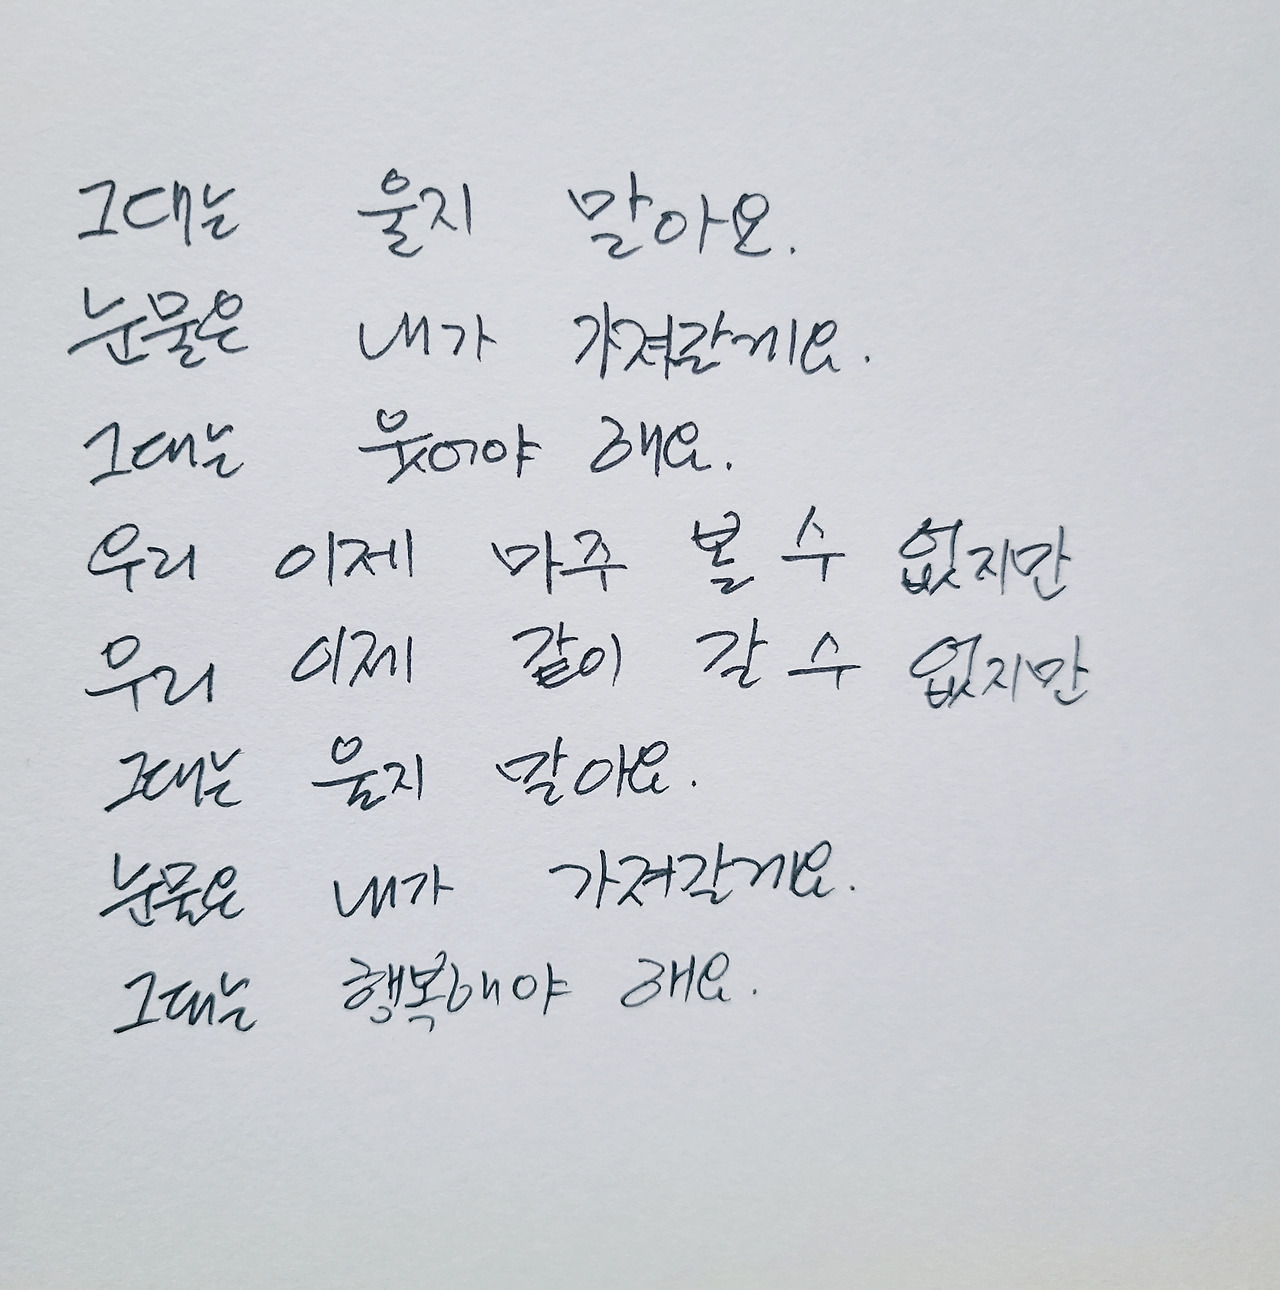 그대는 울지 말아요.
눈물은 내가 가져갈게요.
그대는 웃어야 해요.
우리 이제 마주 볼 수 없지만
우리 이제 같이 갈 수 없지만
그대는 울지 말아요.
눈물은 내가 가져갈게요.
그대는 행복해야 해요.